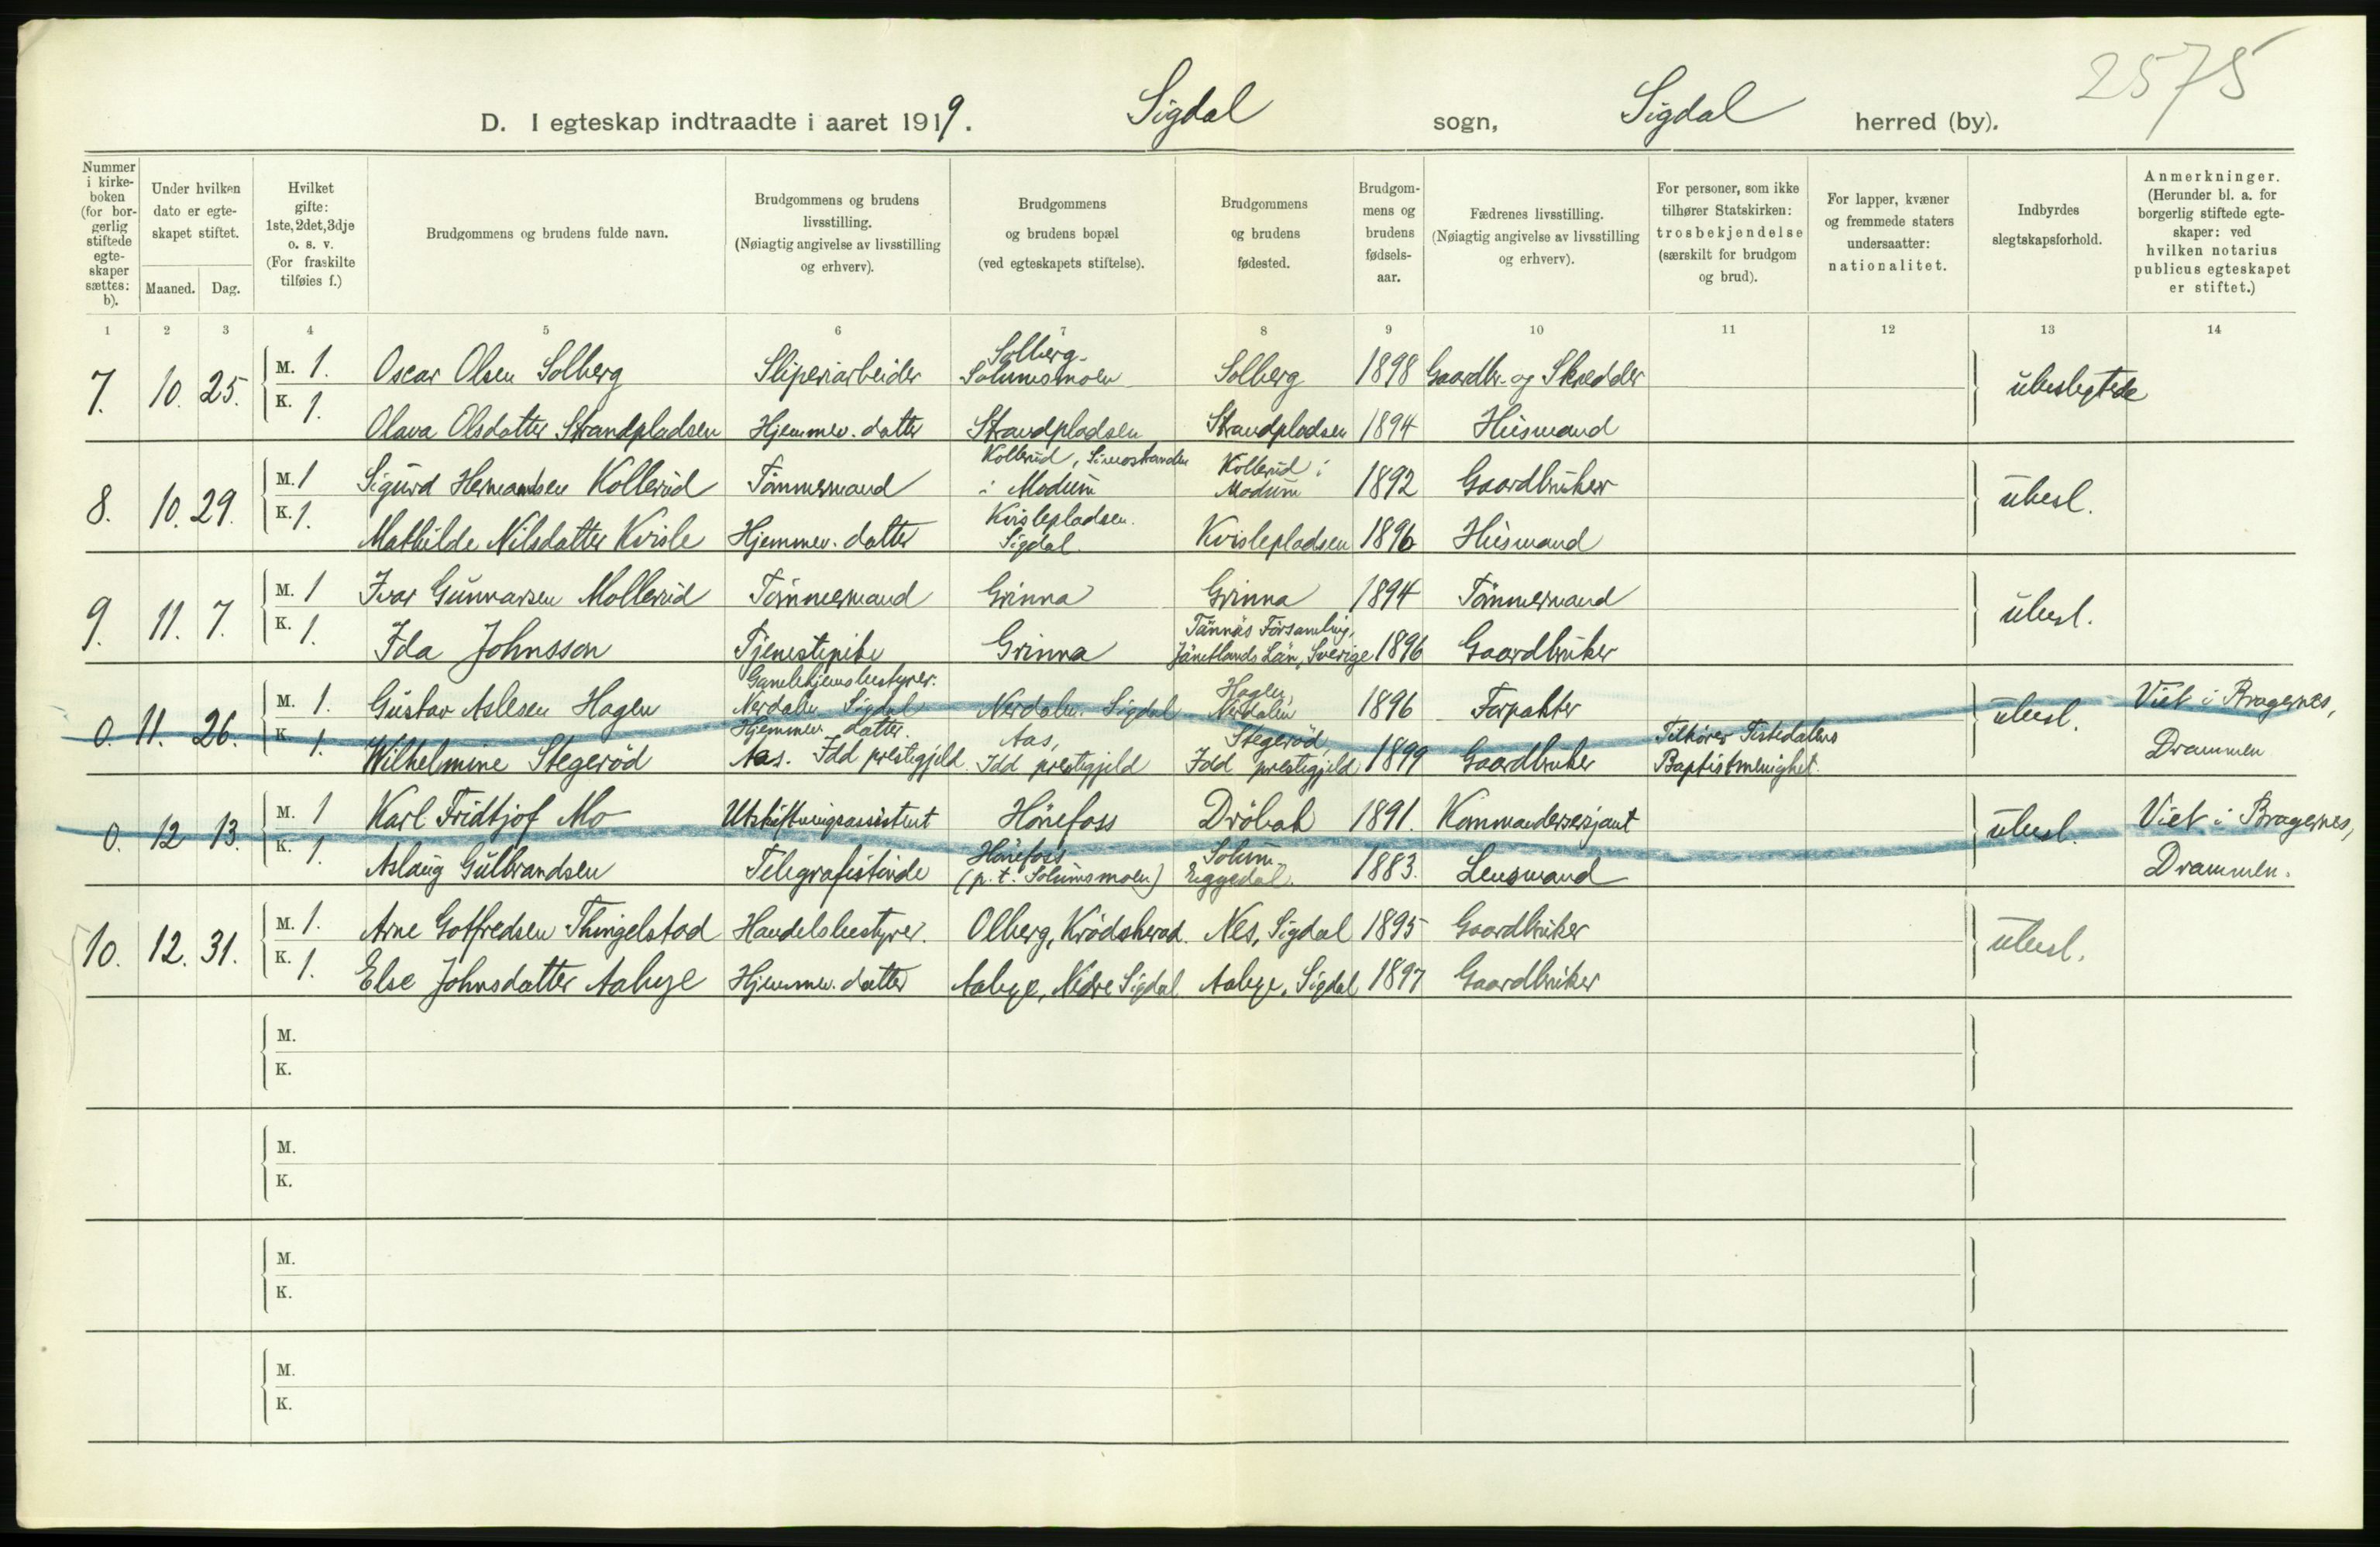 2575
D. I egteskap indtraadte i aaret 1919. Sigdal sogn, Sigdal herred (by).
Nummer i kirke-boken (for bor-gerlig stiftede egte-skaper sættes: b).
Under hvilken dato er egte-skapet stiftet.
Maaned. Dag.
Hvilket gifte: 1ste, 2det, 3dje o. s. v. (For fraskilte tilføies f.)
Brudgommens og brudens fulde navn.
Brudgommens og brudens livsstilling. (Nøiagtig angivelse av livsstilling og erhverv).
Brudgommens og brudens bopæl (ved egteskapets stiftelse).
Brudgommens og brudens fødested.
Brudgom-mens og brudens fødsels-aar.
Fædrenes livsstilling. (Nøiagtig angivelse av livsstilling og erhverv).
For personer, som ikke tilhører Statskirken: trosbekjendelse (særskilt for brudgom og brud).
For lapper, kvæner og fremmede staters undersaatter: nationalitet.
Indbyrdes slegtskapsforhold.
Anmerkninger. (Herunder bl. a. for borgerlig stiftede egte-skaper: ved hvilken notarius publicus egteskapet er stiftet.)
1 2 3 4 5 6 7 8 9 10 11 12 13 14
7. 10. 25. M. 1. Oscar Olsen Solberg Sliperiarbeider Solberg Solumsmoen Solberg 1898 Gaardbr. og Skrædder ubeslegtede
K. 1. Olava Olsdatter Strandpladsen Hjemmev. datter Strandpladsen Strandpladsen 1894 Husmand
8. 10. 29. M. 1 Sigurd Hermandsen Kollerud Tömmermand Kollerud, Simostranden i Modum Kollerud i Modum 1892 Gaardbruker ubesl.
K. 1. Mathilde Nilsdatter Kvisle Hjemmev. datter Kvislepladsen. Sigdal. Kvislepladsen 1896 Husmand
9. 11. 7. M. 1 Ivar Gunnarsen Mollerud Tömmermand Grinna Grinna 1894 Tömmermand ubesl.
K. 1. Ida Johnsson Tjenestepike Grinna Tännäs Församling, Jämtlands Län, Sverige 1896 Gaardbruker
0. 11. 26. M. 1. Gustav Aslesen Hagen Gamlehjemsbestyrer. Nerdalen Sigdal Nerdalen. Sigdal Hagen, Nerdalen 1896 Forpakter ubesl. Viet i Bragernes,
K. 1. Wilhelmine Stegeröd Hjemmev. datter. Aas. Idd prestegjeld Aas, Idd prestegjeld Stegeröd, Idd prestegjeld 1899 Gaardbruker Tilhører Tistedalens Baptistmenighet. Drammen
0. 12 13. M. 1 Karl Fridtjof Mo Utskiftningsassistent Hönefoss Dröbak 1891. Kommandersersjant ubesl. Viet i Bragernes,
K. 1. Aslaug Gulbrandsen Telegrafistinde Hönefoss (p. t. Solumsmoen) Solum, Eggedal. 1883. Lensmand Drammen.
10. 12. 31. M. 1. Arne Gotfredsen Thingelstad Handelsbestyrer. Olberg, Krödsherad. Nes, Sigdal 1895 Gaardbruker ubesl.
K. 1. Else Johnsdatter Aabye Hjemmev. datter Aabye, Nedre Sigdal Aabye, Sigdal 1897 Gaardbruker
M.
K.
M.
K.
M.
K.
M.
K.